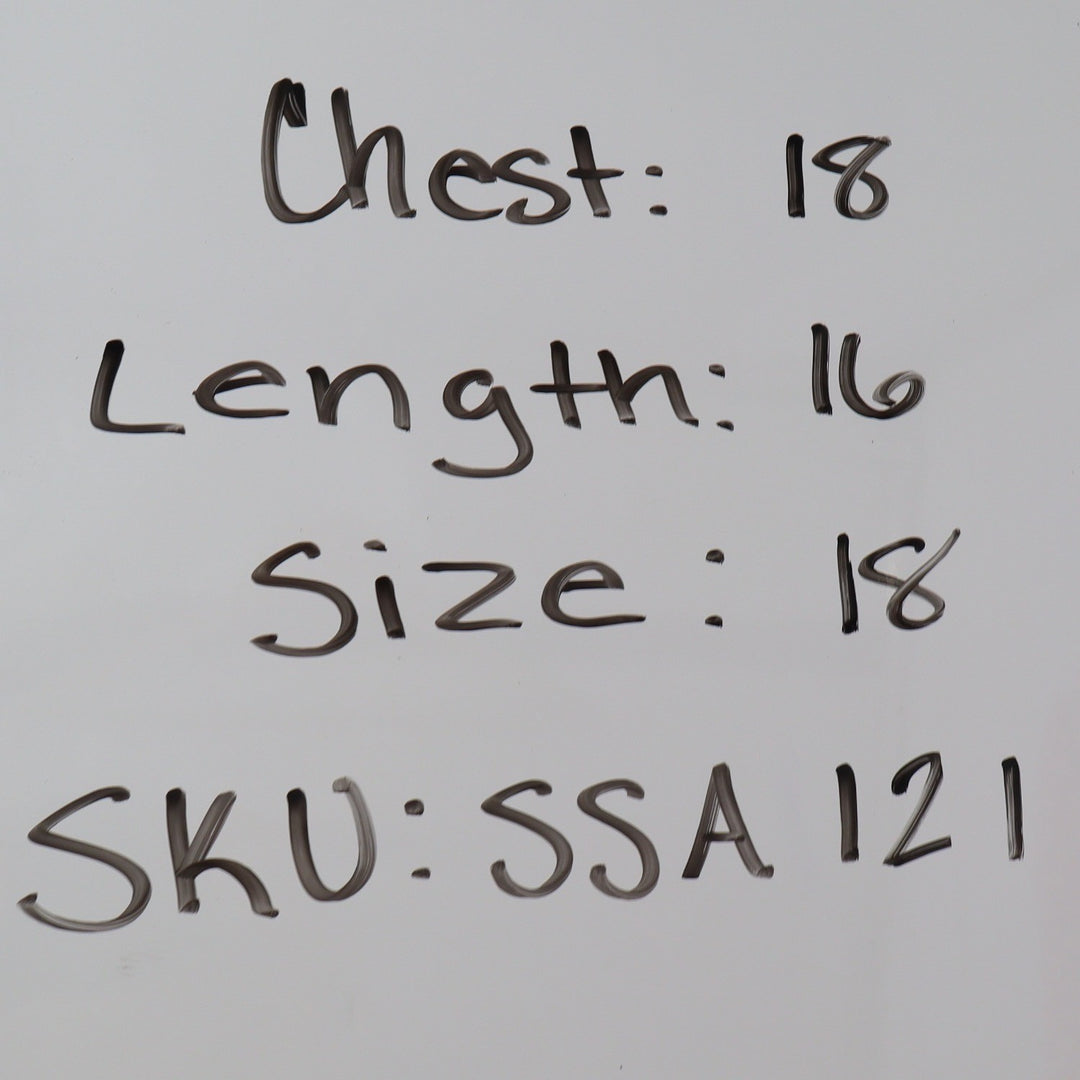 Chest: 18
Length: 16
Size: 18
SKU: SSA 121